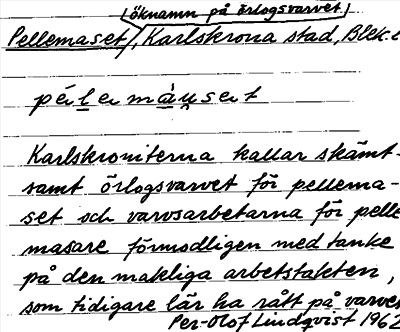 öknamn på örlogsvarvet
Pellemaset, Karlskrona stad, Blek
Karlskroniterna kallar skämt-
samt örlogsvarvet för pellema-
set och varvsarbetarna för pelle
masare förmodligen med tanke
på den makliga arbetstakten,
som tidigare lär ha rått på varvet
Per-Olof Lindqvist 1962